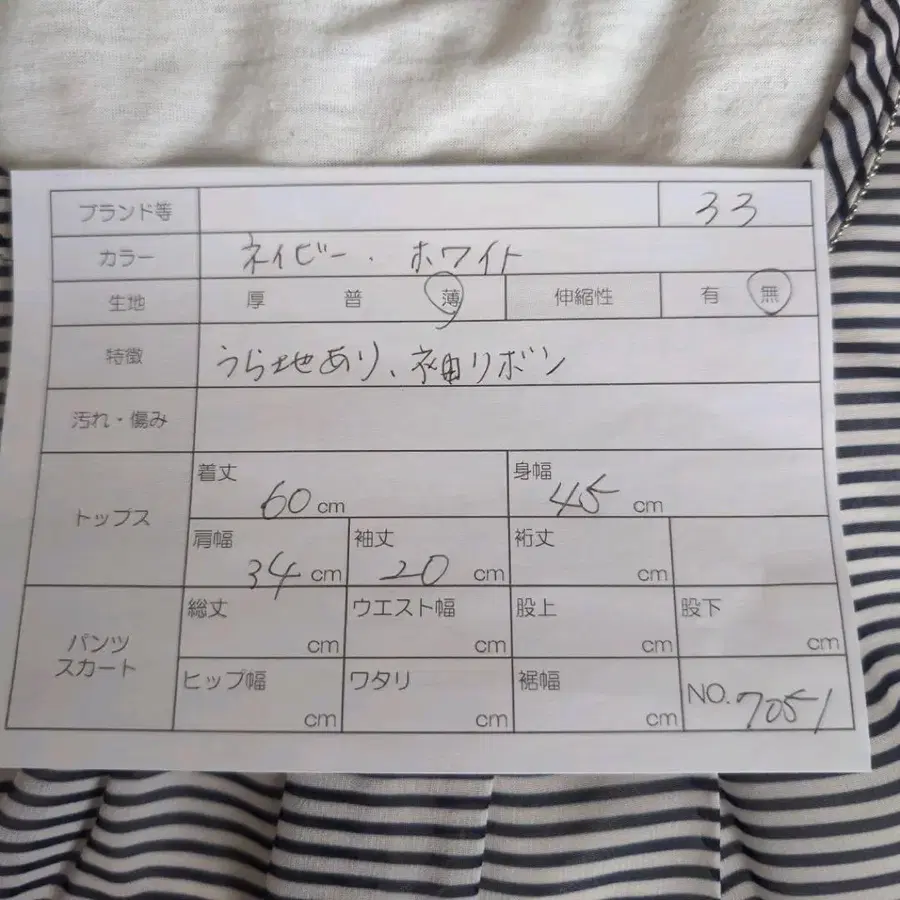 ブランド等 33
カラー ネイビー. ホワイト
生地 厚 普 薄 伸縮性 有 無
特徴 うら地あり、袖リボン
汚れ・傷み
トップス
着丈 60 cm 身幅 45 cm
肩幅 34 cm 袖丈 20 cm 裄丈 cm
パンツ
スカート
総丈 cm ウエスト幅 cm 股上 cm 股下 cm
ヒップ幅 cm ワタリ cm 裾幅 cm NO. 7051